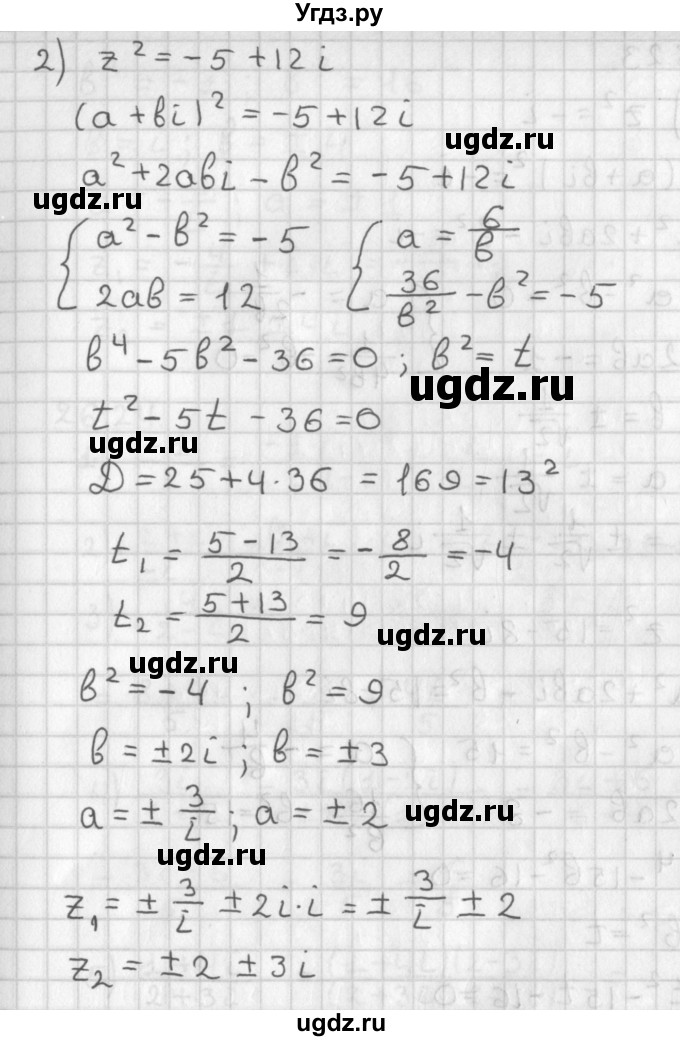 Угдз.ру
2) z² = -5 + 12i
(a + bi)² = -5 + 12i
ugdz.ru
a² + 2abi - b² = -5 + 12i
ugdz.ru
{ a² - b² = -5 { a = 6/b
2ab = 12 36/b² - b² = -5
b⁴ - 5b² - 36 = 0 ; b² = t
ugdz.ru
t² - 5t - 36 = 0
D = 25 + 4·36 = 169 = 13²
t₁ = (5 - 13)/2 = -8/2 = -4
t₂ = (5 + 13)/2 = 9
ugdz.ru
ugdz.ru
b² = -4 ; b² = 9
b = ±2i ; b = ±3
a = ± 3/i ; a = ±2
ugdz.ru
ugdz.ru
z₁ = ± 3/i ± 2i·i = ± 3/i ± 2
z₂ = ±2 ± 3i
ugdz.ru